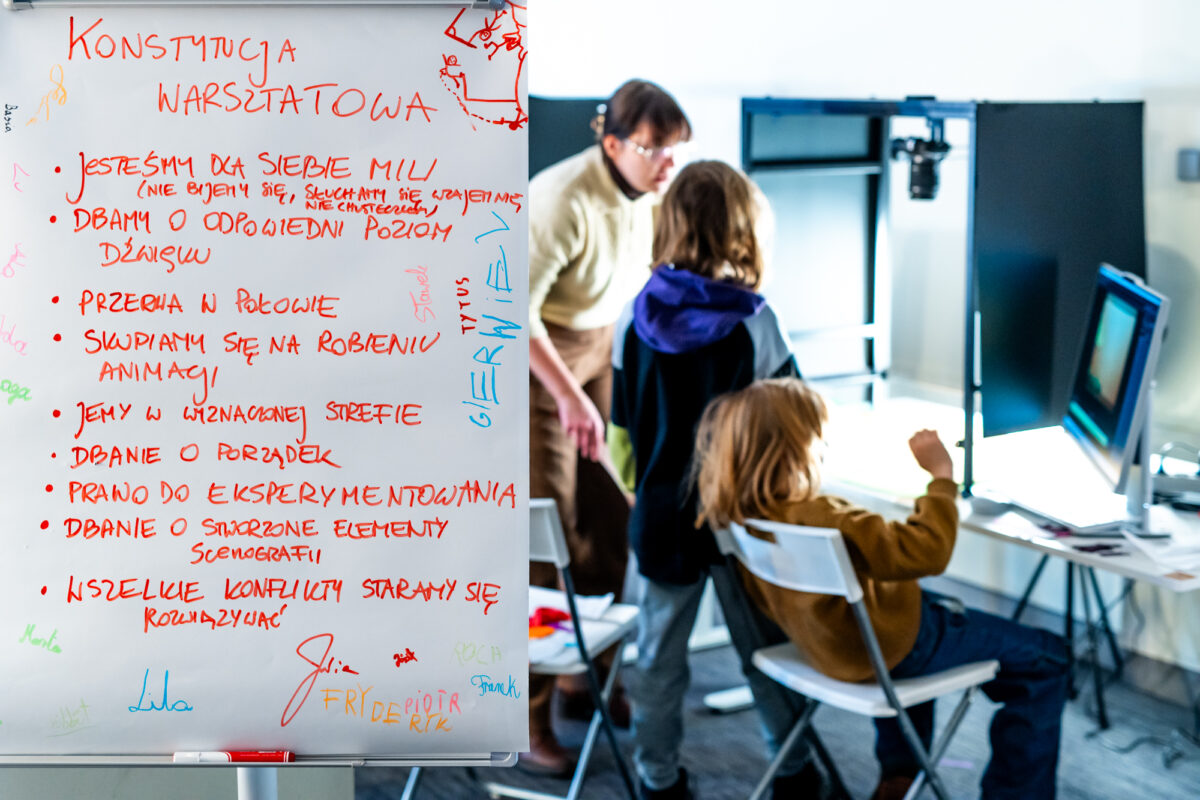 KONSTYTUCJA
WARSZTATOWA
• JESTEŚMY DLA SIEBIE MILI
(NIE BIJEMY SIĘ, SŁUCHAMY SIĘ WZAJEMNIE,
NIE CHUSTECZKUJ)
• DBAMY O ODPOWIEDNI POZIOM
DŹWIĘKU
• PRZERWA W POŁOWIE
• SKUPIAMY SIĘ NA ROBIENIU
ANIMACJI
• JEMY W WYZNACZONEJ STREFIE
• DBANIE O PORZĄDEK
• PRAWO DO EKSPERYMENTOWANIA
• DBANIE O STWORZONE ELEMENTY
SCENOGRAFII
• WSZELKIE KONFLIKTY STARAMY SIĘ
ROZWIĄZYWAĆ
Basia
Sławek
TYTUS
GIERWIEL
Lila
Julia
FRYDERYK
PIOTR
ROCH
Franek